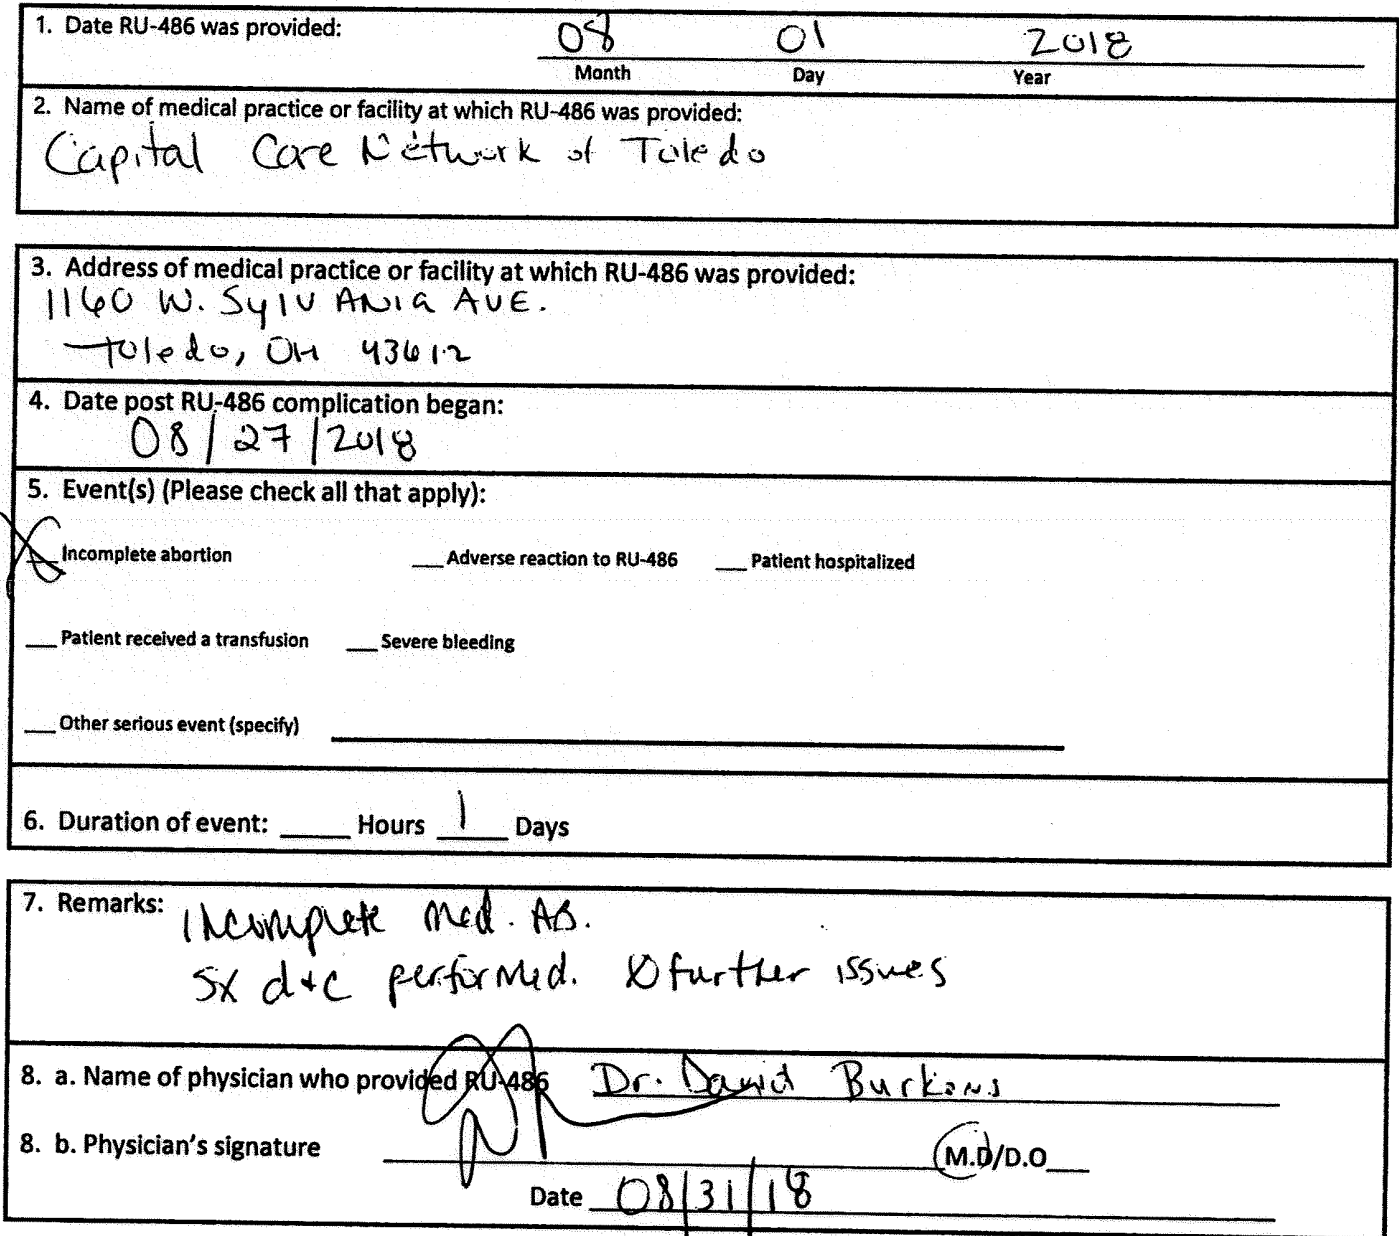 1. Date RU-486 was provided: 08 01 2018
Month Day Year
2. Name of medical practice or facility at which RU-486 was provided:
Capital Care Network of Toledo
3. Address of medical practice or facility at which RU-486 was provided:
1160 W. Sylvania Ave.
Toledo, OH 43612
4. Date post RU-486 complication began:
08/27/2018
5. Event(s) (Please check all that apply):
X Incomplete abortion ___ Adverse reaction to RU-486 ___ Patient hospitalized
___ Patient received a transfusion ___ Severe bleeding
___ Other serious event (specify) ___
6. Duration of event: ___ Hours 1 Days
7. Remarks: Incomplete Med. AB.
Sx d+c performed. Ø further issues
8. a. Name of physician who provided RU-486 Dr. David Burkons
8. b. Physician's signature M.D/D.O___
Date 08/31/18